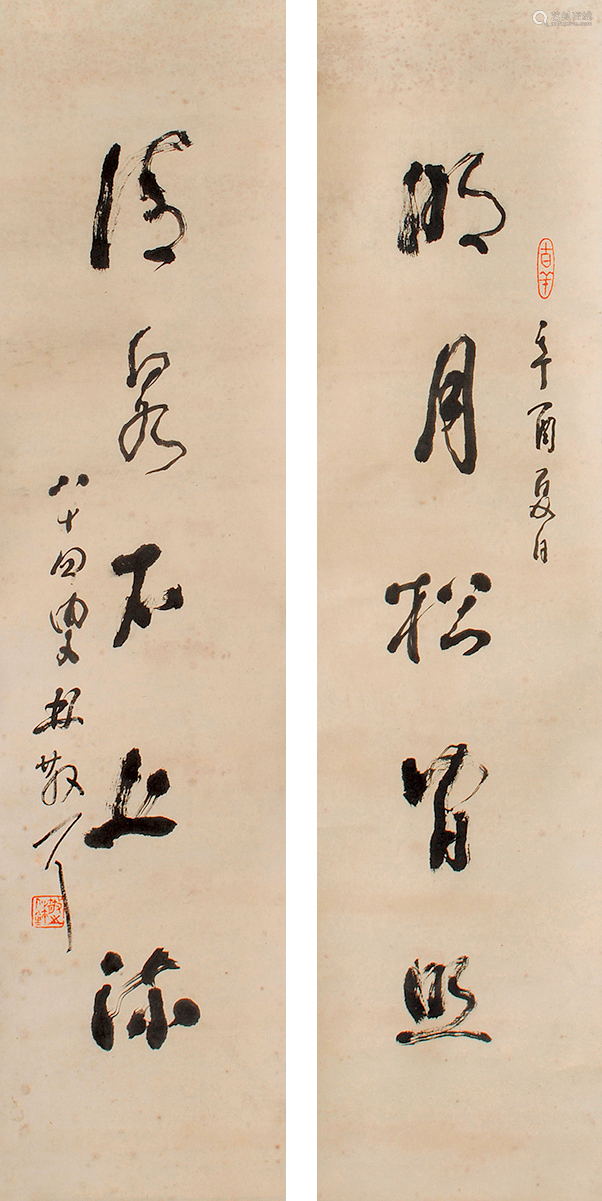 辛酉夏日
明月松間照
清泉石上流
八十四叟林散耳